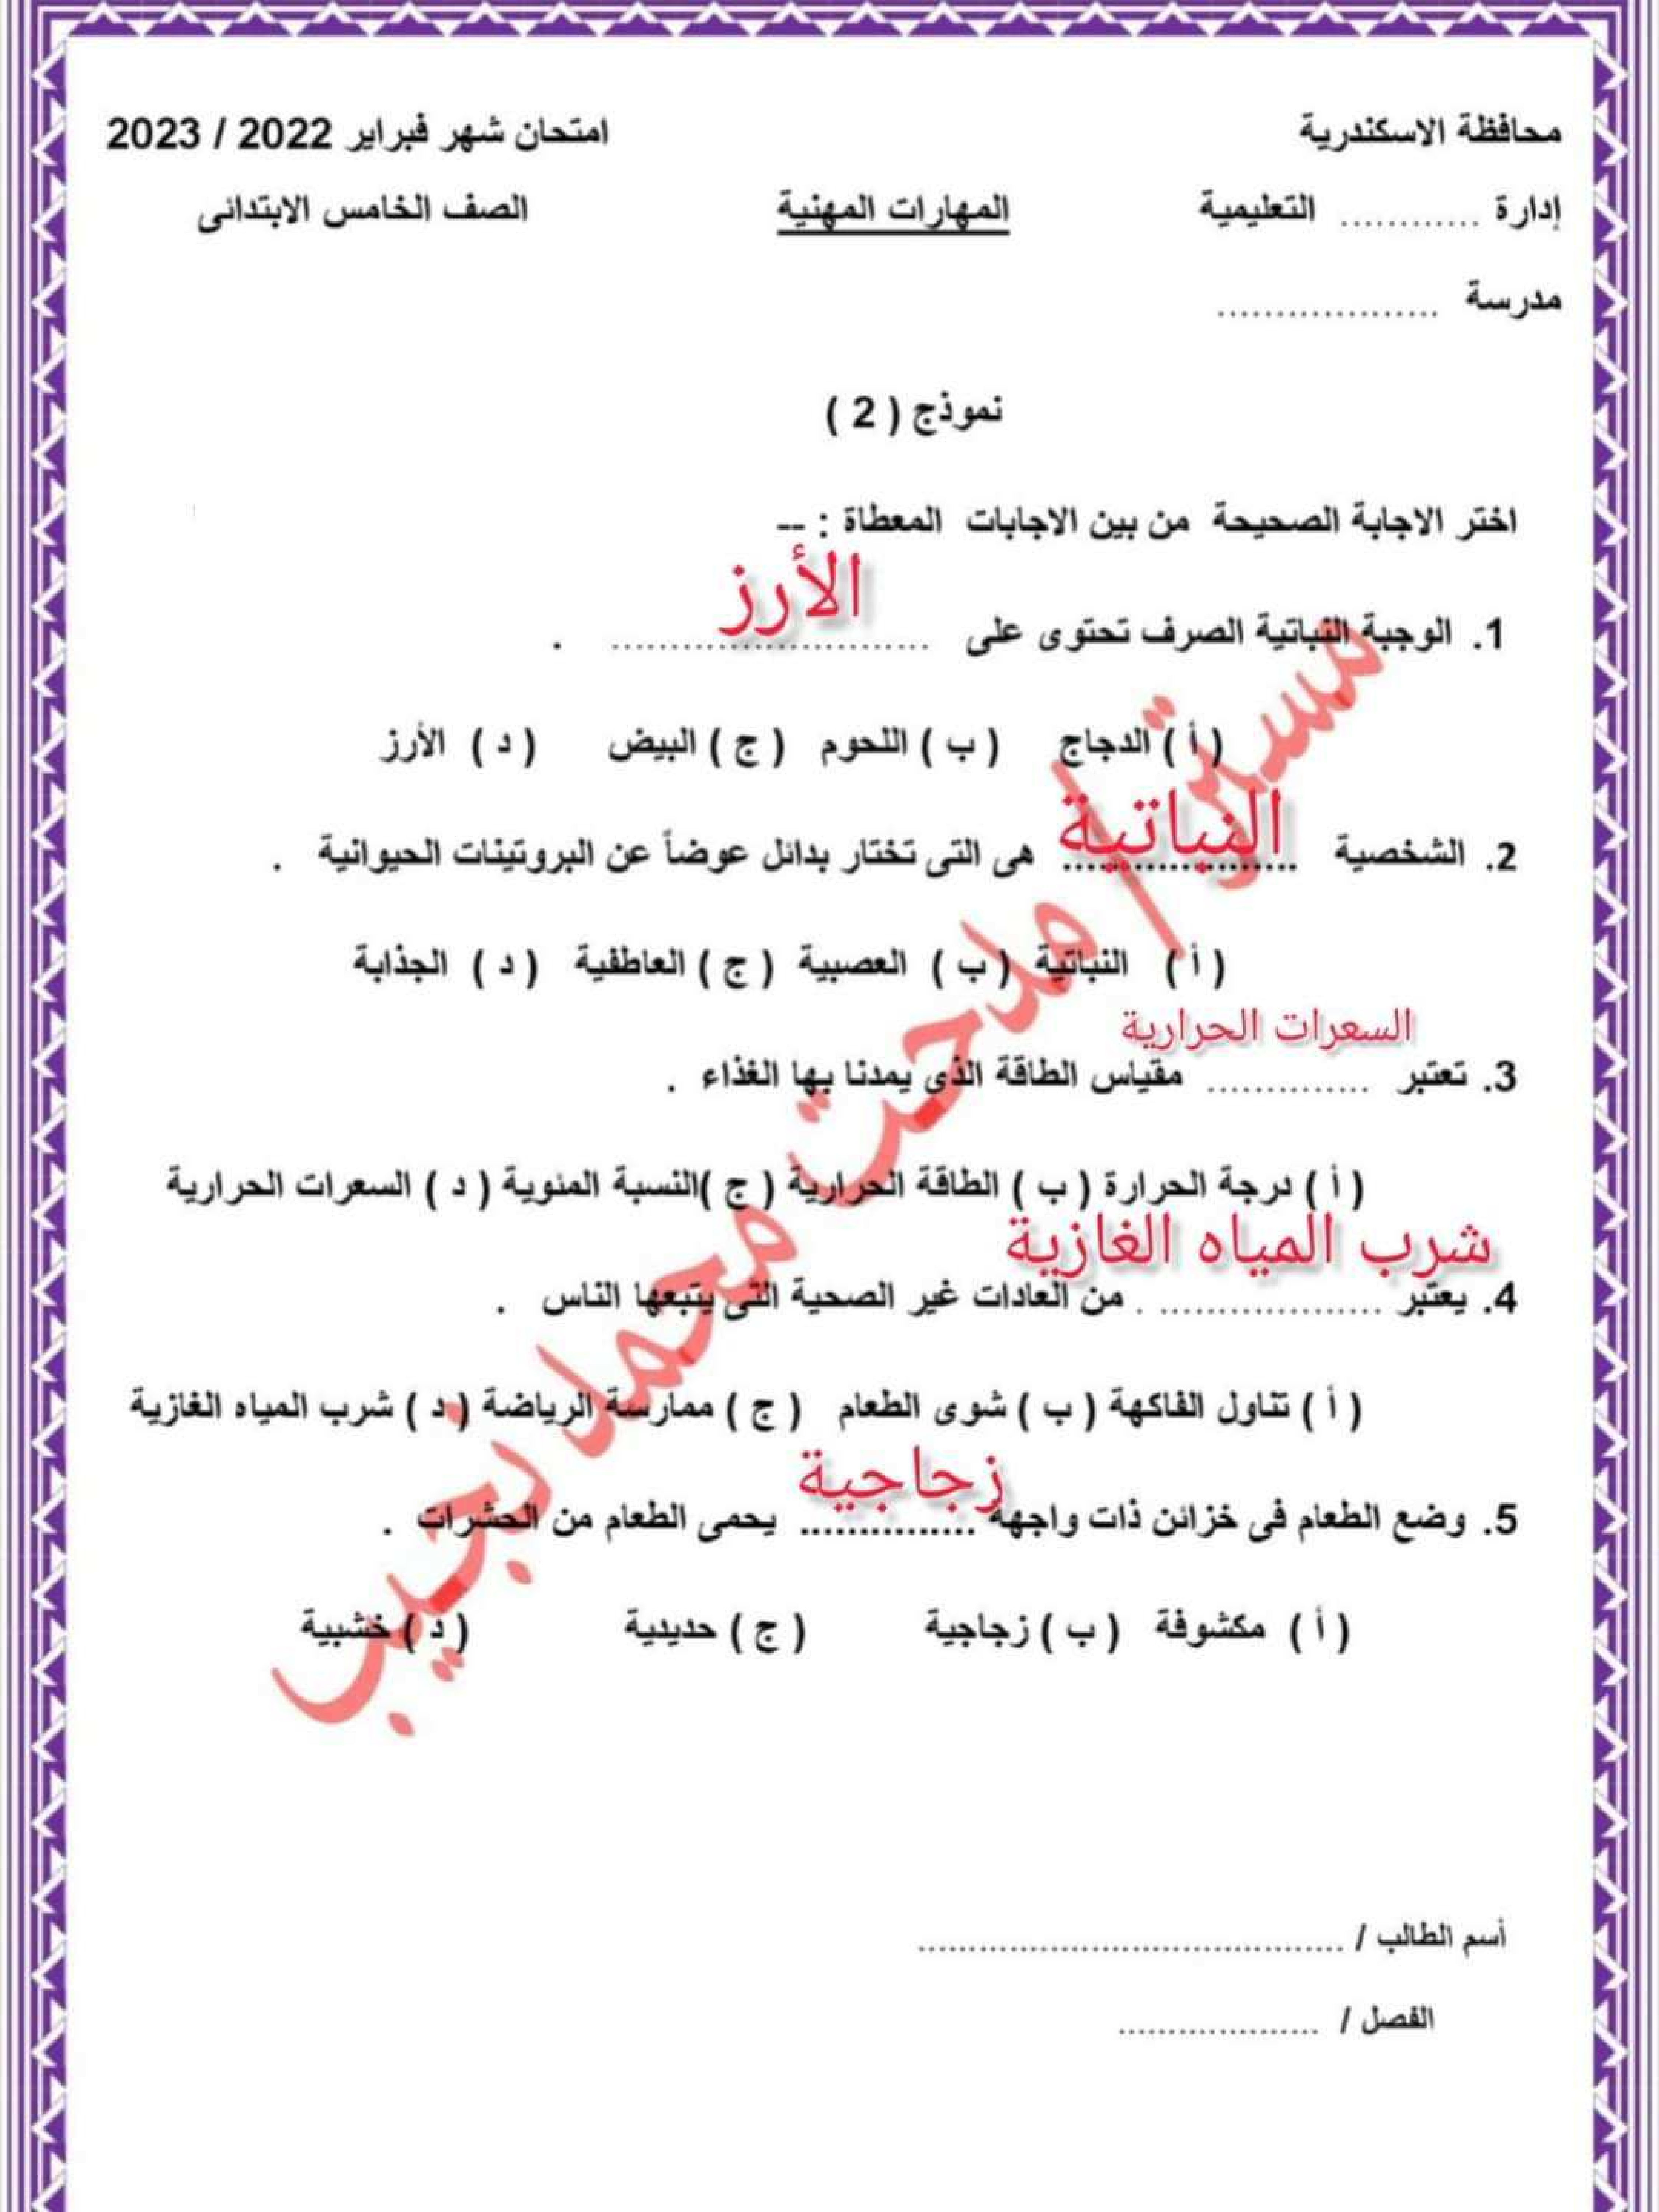 محافظة الاسكندرية امتحان شهر فبراير 2022 / 2023
إدارة ............ التعليمية المهارات المهنية الصف الخامس الابتدائى
مدرسة ...................
نموذج ( 2 )
اختر الاجابة الصحيحة من بين الاجابات المعطاة : --
الأرز
1. الوجبة النباتية الصرف تحتوى على ........................... .
( أ ) الدجاج ( ب ) اللحوم ( ج ) البيض ( د ) الأرز
النباتية
2. الشخصية .................... هى التى تختار بدائل عوضاً عن البروتينات الحيوانية .
( أ ) النباتية ( ب ) العصبية ( ج ) العاطفية ( د ) الجذابة
السعرات الحرارية
3. تعتبر .............. مقياس الطاقة الذى يمدنا بها الغذاء .
( أ ) درجة الحرارة ( ب ) الطاقة الحرارية ( ج )النسبة المئوية ( د ) السعرات الحرارية
شرب المياه الغازية
4. يعتبر ................... . من العادات غير الصحية التى يتبعها الناس .
( أ ) تناول الفاكهة ( ب ) شوى الطعام ( ج ) ممارسة الرياضة ( د ) شرب المياه الغازية
زجاجية
5. وضع الطعام فى خزائن ذات واجهة ............... يحمى الطعام من الحشرات .
( أ ) مكشوفة ( ب ) زجاجية ( ج ) حديدية ( د ) خشبية
مستر/ مدحت محمد نجيب
أسم الطالب / ........................................
الفصل / ....................